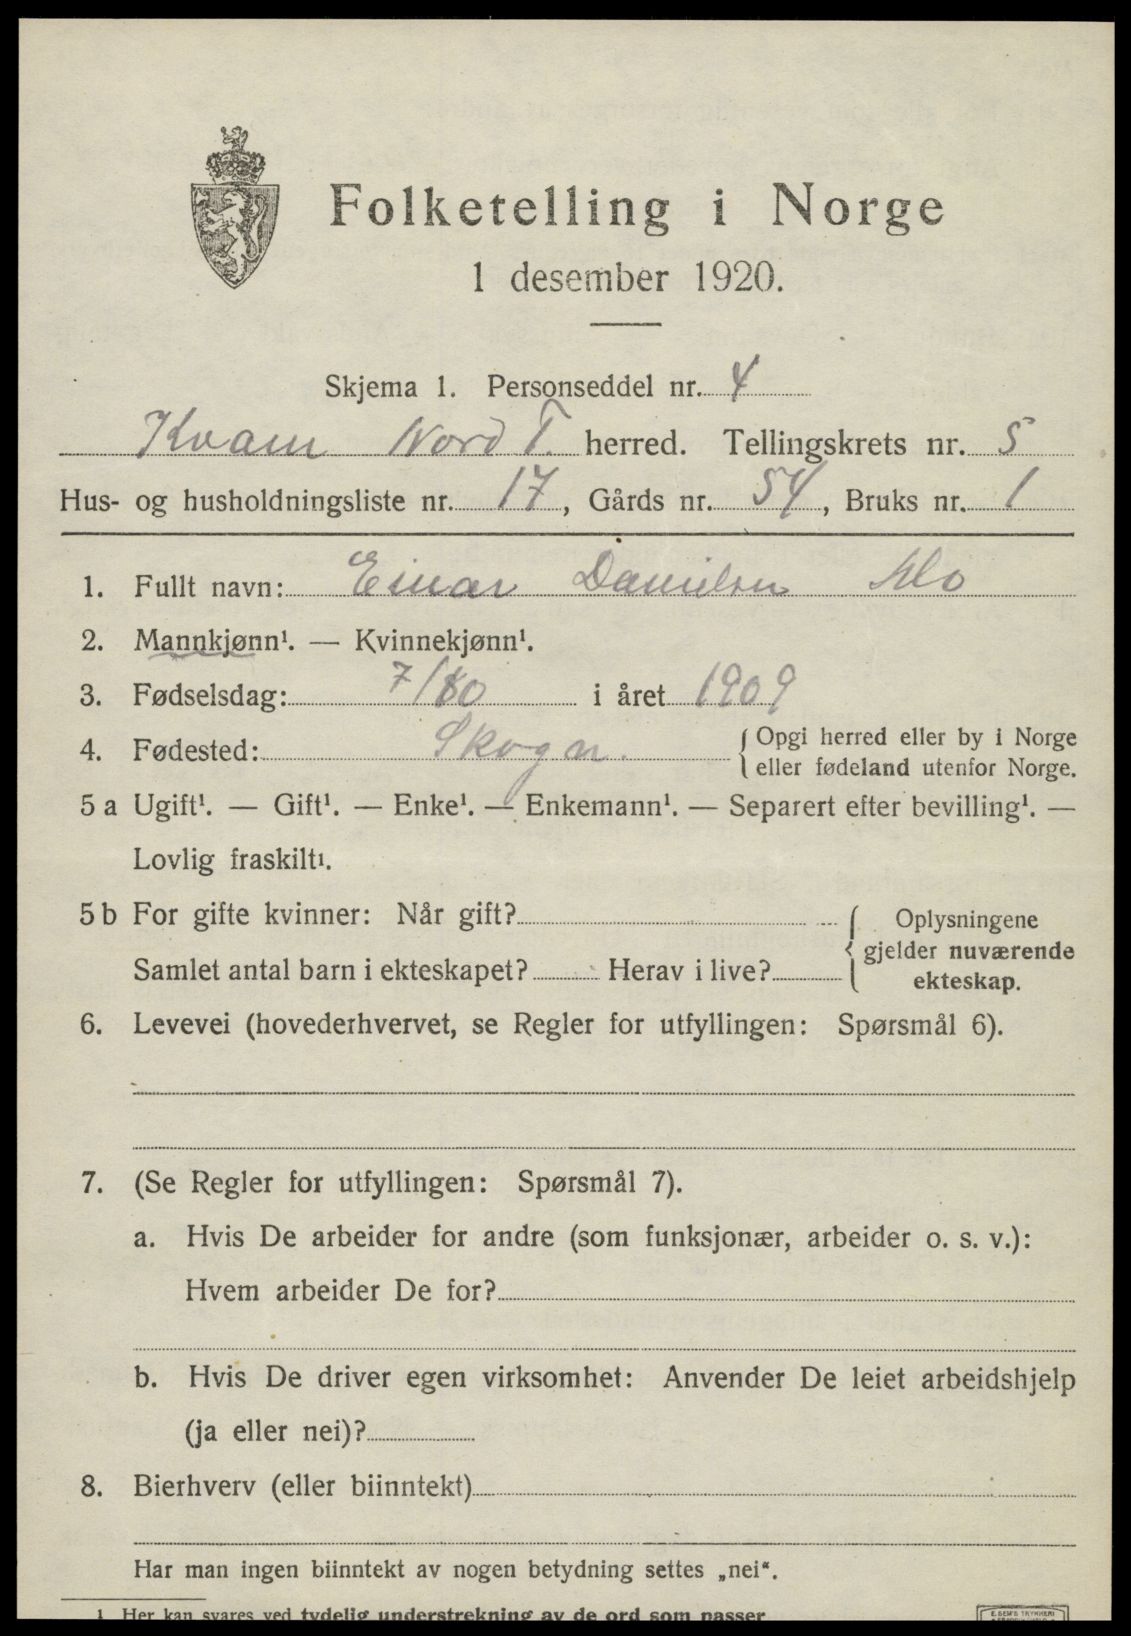 Folketelling i Norge
1 desember 1920.
Skjema 1. Personseddel nr. 4
Kvam Nord T. herred. Tellingskrets nr. 5
Hus- og husholdningsliste nr. 17, Gårds nr. 54, Bruks nr. 1
1. Fullt navn: Einar Danielsen Mo
2. Mannkjønn¹. — Kvinnekjønn¹.
3. Fødselsdag: 7/10 i året 1909
4. Fødested: Skogn. { Opgi herred eller by i Norge
eller fødeland utenfor Norge.
5 a Ugift¹. — Gift¹. — Enke¹. — Enkemann¹. — Separert efter bevilling¹. —
Lovlig fraskilt¹.
5 b For gifte kvinner: Når gift? { Oplysningene
gjelder nuværende
Samlet antal barn i ekteskapet? Herav i live? ekteskap.
6. Levevei (hovederhvervet, se Regler for utfyllingen: Spørsmål 6).
7. (Se Regler for utfyllingen: Spørsmål 7).
a. Hvis De arbeider for andre (som funksjonær, arbeider o. s. v.):
Hvem arbeider De for?
b. Hvis De driver egen virksomhet: Anvender De leiet arbeidshjelp
(ja eller nei)?
8. Bierhverv (eller biinntekt)
Har man ingen biinntekt av nogen betydning settes „nei“.
1 Her kan svares ved tydelig understrekning av de ord som passer
E. SEM'S TRYKKERI